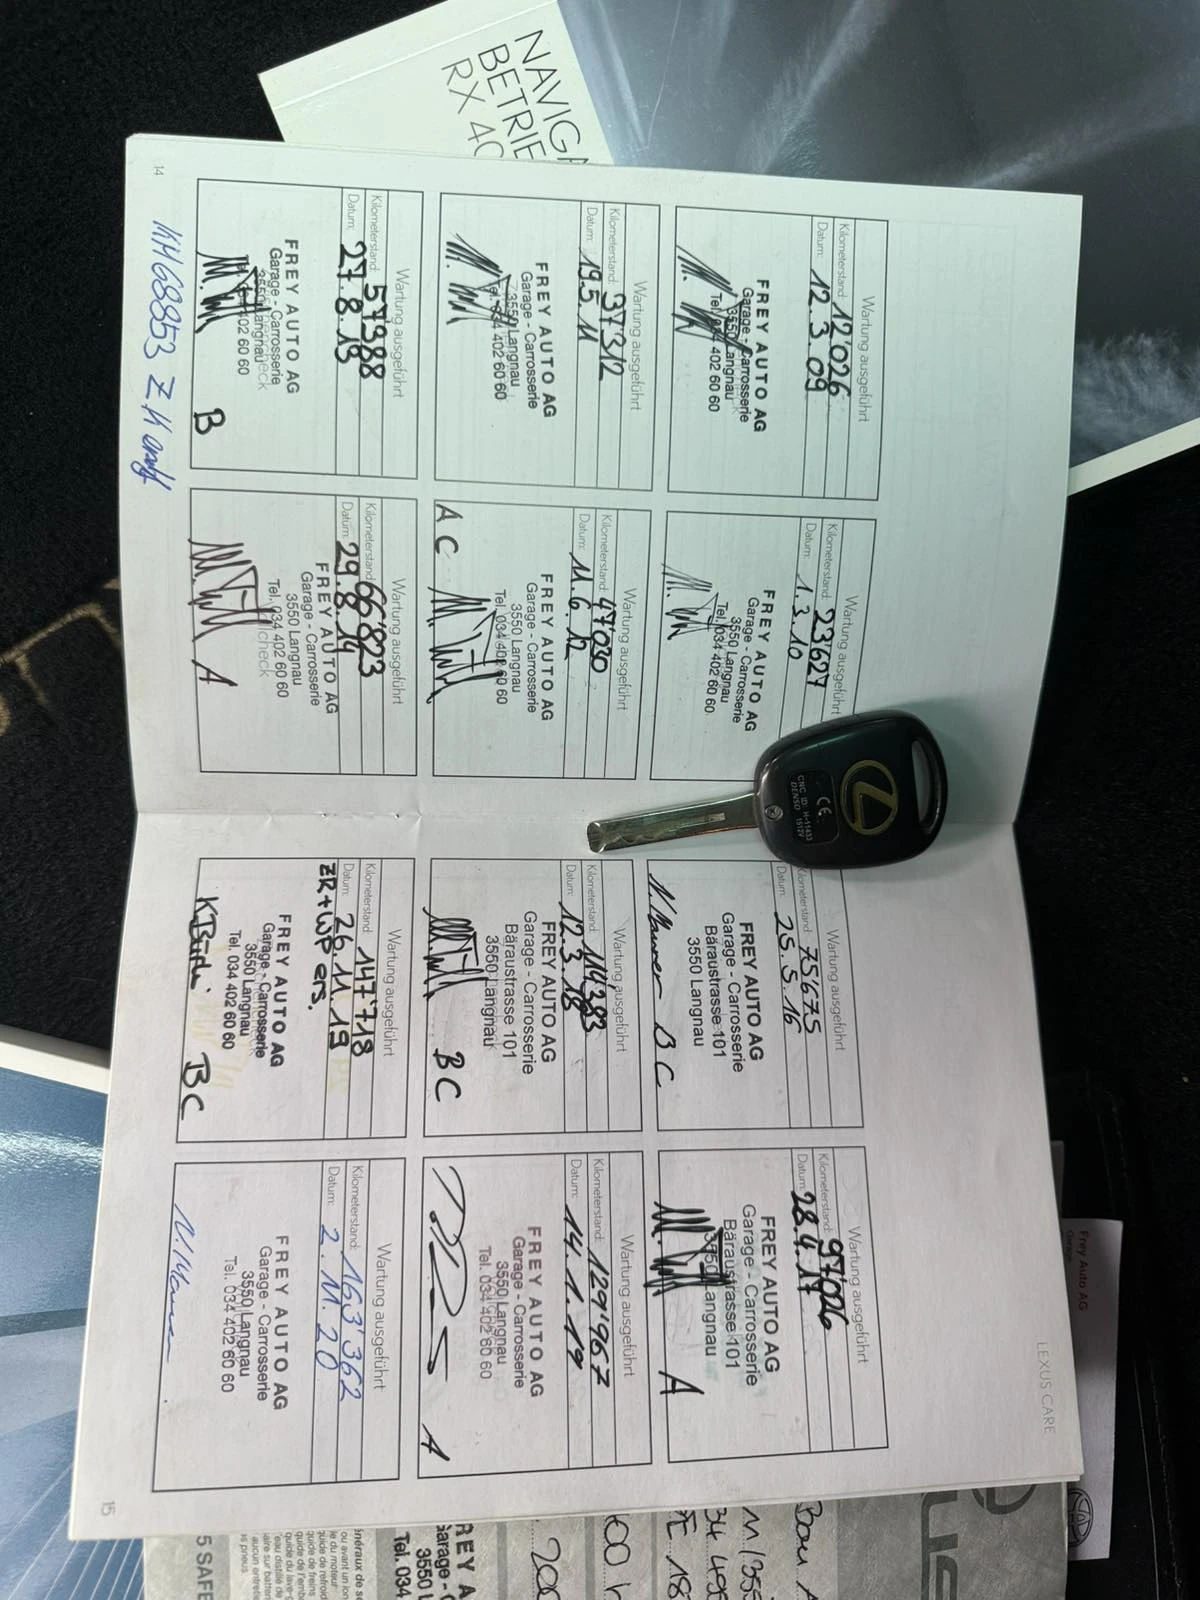 NAVIGA
BETRIE
RX 40
14
Wartung ausgeführt
Kilometerstand: 12'026
Datum: 12.3.09
FREY AUTO AG
Garage - Carrosserie
3550 Langnau
Tel. 034 402 60 60
Wartung ausgeführt
Kilometerstand: 23'627
Datum: 1.3.10
FREY AUTO AG
Garage - Carrosserie
3550 Langnau
Tel. 034 402 60 60
Wartung ausgeführt
Kilometerstand: 37'312
Datum: 19.5.11
FREY AUTO AG
Garage - Carrosserie
3550 Langnau
Tel. 034 402 60 60
Wartung ausgeführt
Kilometerstand: 47'020
Datum: 11.6.12
FREY AUTO AG
Garage - Carrosserie
3550 Langnau
Tel. 034 402 60 60
AC
Wartung ausgeführt
Kilometerstand: 57'988
Datum: 27.8.13
FREY AUTO AG
Garage - Carrosserie
3550 Langnau
Tel. 034 402 60 60
B
Wartung ausgeführt
Kilometerstand: 66'823
Datum: 29.8.14
FREY AUTO AG
Garage - Carrosserie
3550 Langnau
Tel. 034 402 60 60
check
A
KM 68853
CE
CNC ID: H-11433
DENSO 1512V
LEXUS CARE
Wartung ausgeführt
Kilometerstand: 75'675
Datum: 25.5.16
FREY AUTO AG
Garage - Carrosserie
Bäraustrasse 101
3550 Langnau
BC
Wartung ausgeführt
Kilometerstand: 97'026
Datum: 28.4.17
FREY AUTO AG
Garage - Carrosserie
Bäraustrasse 101
3550 Langnau
A
Wartung ausgeführt
Kilometerstand: 114'383
Datum: 12.3.18
FREY AUTO AG
Garage - Carrosserie
Bäraustrasse 101
3550 Langnau
BC
Wartung ausgeführt
Kilometerstand: 129'967
Datum: 14.1.19
FREY AUTO AG
Garage - Carrosserie
3550 Langnau
Tel. 034 402 60 60
A
Wartung ausgeführt
Kilometerstand: 147'718
Datum: 26.11.19
ZR+WP ers.
FREY AUTO AG
Garage - Carrosserie
3550 Langnau
Tel. 034 402 60 60
BC
Wartung ausgeführt
Kilometerstand: 163'362
Datum: 2.11.20
FREY AUTO AG
Garage - Carrosserie
3550 Langnau
Tel. 034 402 60 60
15
Frey Auto AG
Garage
5 SAFE